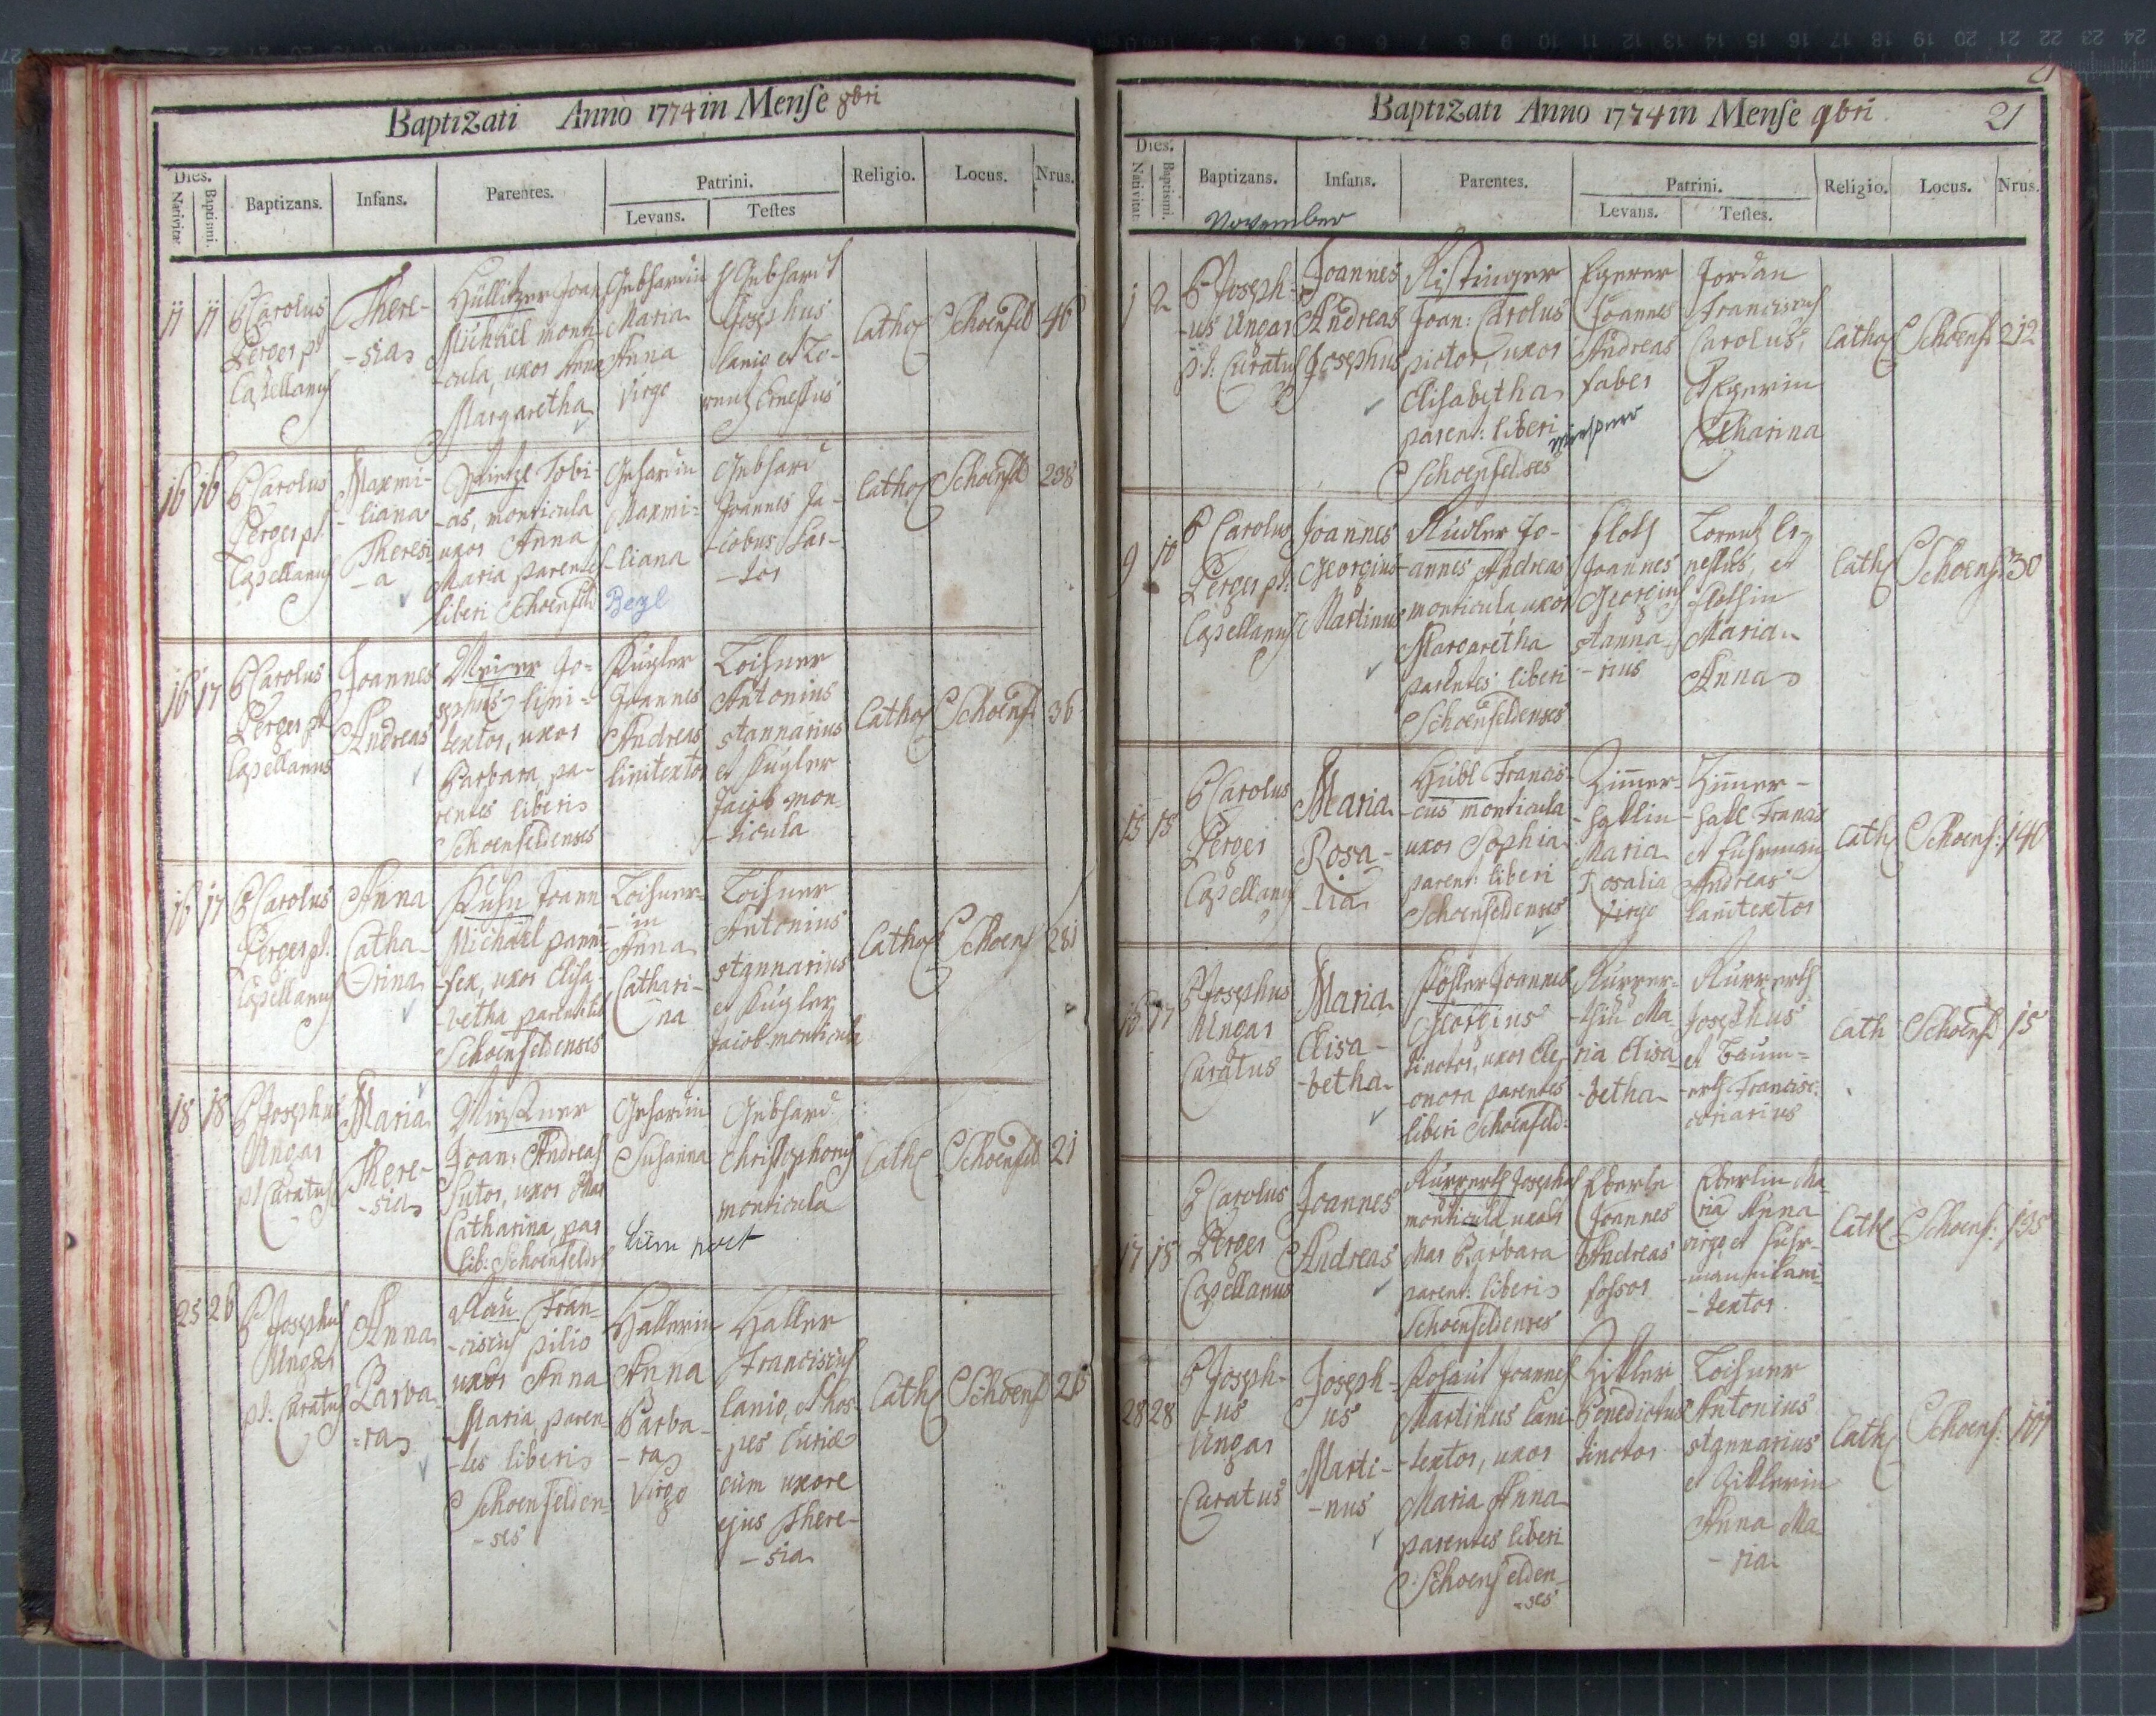 Baptizati Anno 1774 in Mense 8bri
Dies.
Nativitat.
Baptismi.
Baptizans.
Infans.
Parentes.
Patrini.
Levans.
Testes
Religio.
Locus.
Nrus.
11
11
P Carolus
Perger pt
Capellanus
There-
-sia
Hüllitzer Joan
Michael monti-
-cula, uxor Anna
Margaretha
Gebhardin
Maria
Anna
Virgo
Gebhardt
Josephus
lanio et Lo-
rentz Ernestus
Cathol
Schoenfeld
46
16
16
P Carolus
Perger pt
Capellanus
Maxmi-
-liana
Theresi-
-a
Tobi-
-as, monticula
uxor Anna
Maria parentes
liberi Schoenfeld
Maxmi-
-liana
Begl
Gebhard
Joannes Ja-
-cobus Sar-
-tor
Cathol
Schoenfeld
238
16
17
P Carolus
Perger pt
Capellanus
Joannes
Andreas
Meier Jo-
sephus lini-
textor, uxor
Barbara, pa-
rentes liberi
Schoenfeldenses
Kugler
Joannes
Andreas
linitextor
Loisner
Antonius
stannarius
et Kugler
Jacob mon-
-ticula
Cathol
Schoenf
36
16
17
P Carolus
Perger pt.
Capellanus
Anna
Catha-
-rina
Kuhn Joann
Michael panni-
-fex, uxor Elisa
-betha parentes
Schoenfeldenses
Loisner-
-in
Anna
Cathari-
na
Loisner
Antonius
stannarius
et Kugler
Jacob monticula
Cathol
Schoenf
281
18
18
P Josephus
Ungar
pt Curatus
Maria
There-
-sia
Joan: Andreas
Sutor, uxor Mar
Catharina, par
lib: Schoenfelds
Susanna
Gebhard
Christophorus
monticula
Cath
Schoenfeld
21
25
26
P Josephus
Ungar
pt: Curatus
Anna
Barba-
-ra
Rau Fran-
-ciscus pilio
uxor Anna
Maria, paren-
-tes liberi
Schoenfelden-
-ses
Hallerin
Anna
Barba-
-ra
Virgo
Haller
Franciscus
lanio, et hos-
-pes Curiae
cum uxore
ejus There-
-sia
Cath
Schoenf
26
Baptizati Anno 1774 in Mense 9bri
21
Dies.
Nativitat.
Baptismi.
Baptizans.
Infans.
Parentes.
Patrini.
Levans.
Testes.
Religio.
Locus.
Nrus.
November
1
2
P Joseph-
-us Ungar
pt: Curatus
Joannes
Andreas
Josephus
Joan: Carolus
pictor, uxor
Elisabetha
parent: liberi
Schoenfeldses
Egerer
Joannes
Andreas
faber
Jordan
Franciscus
Carolus,
Egerin
Catharina
Cathol
Schoenf
212
9
10
P Carolus
Perger pt:
Capellanus
Joannes
Georgius
Martinus
Rudler Jo-
-annes Andreas
monticula, uxor
Margaretha
parentes liberi
Schoenfeldenses
Joannes
Georgius
stanna-
-rius
Lorentz Er-
nestus, et
Maria
Anna
Cath
Schoenf
30
15
15
P Carolus
Perger
Capellanus
Maria
Rosa-
-lia
Heibl Francis-
-cus monticula
uxor Sophia
parent: liberi
Schoenfeldenses
Zimer-
-haklin
Maria
Rosalia
Virgo
Zimer-
-hakl Franz
et Fuhrman
Andreas
lanitextor
Cath
Schoenf:
140
16
17
P Josephus
Ungar
Curatus
Maria
Elisa-
-betha
Kösler Joannes
Georgius
tinctor, uxor Ele-
-onora parentes
liberi Schoenfeld:
Ma-
ria Elisa
-betha
Josephus
et Baum-
Francisc:
coriarius
Cath
Schoenf
15
17
18
P Carolus
Perger
Capellanus
Joannes
Andreas
Josephus
monticula, uxor
Mar Barbara
parent: liberi
Schoenfeldenses
Eberle
Joannes
Andreas
fossor
Eberlin Ma-
ria Anna
virgo et Fuhr-
-man lani-
-textor
Cath
Schoenf:
135
28
28
P Joseph-
-us
Ungar
Curatus
Joseph-
us
Marti-
-nus
Kosaut Joannes
Martinus lani-
-textor, uxor
Maria Anna
parentes liberi
Schoenfelden-
-ses
Zikler
Benedictus
tinctor
Loisner
Antonius
stannarius
et Ziklerin
Anna Ma
-ria
Cath
Schoenf:
101